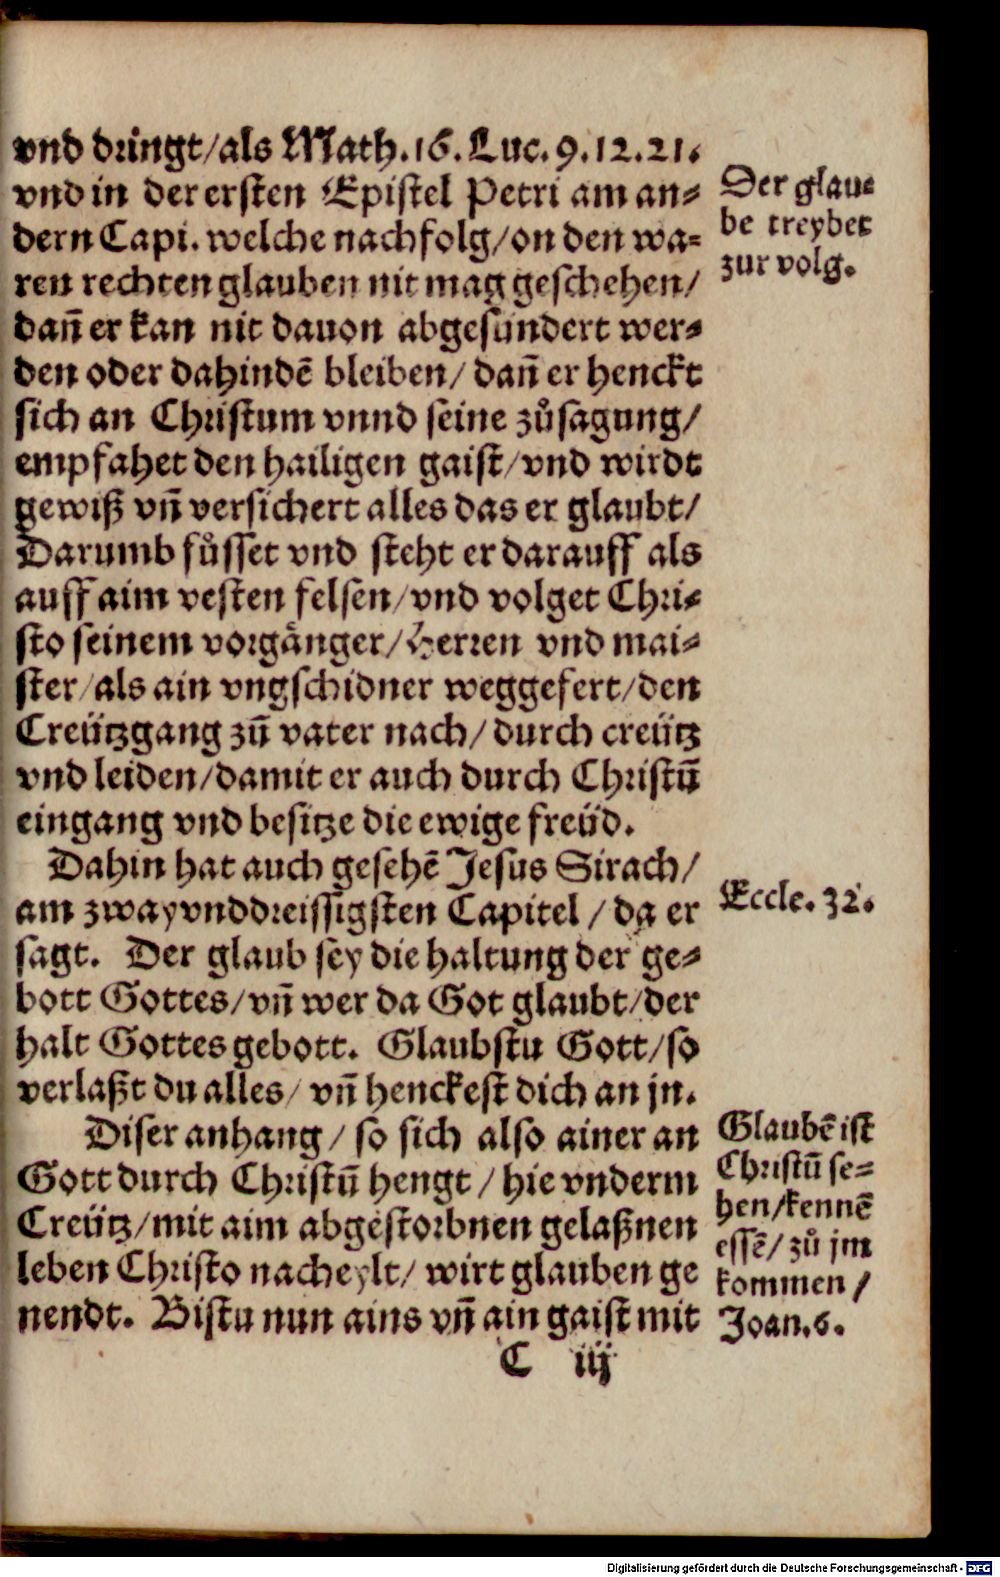 vnd dringt/als Math.16.Luc.9.12.21.
vnd in der ersten Epistel Petri am an-
dern Capi. welche nachfolg/on den wa-
ren rechten glauben nit mag geschehen/
dañ er kan nit dauon abgesündert wer-
den oder dahindẽ bleiben/ dañ er henckt
sich an Christum vnnd seine zůsagung/
empfahet den hailigen gaist/vnd wirdt
gewiß vñ versichert alles das er glaubt/
Darumb fůsset vnd steht er darauff als
auff aim vesten felsen/vnd volget Chri-
sto seinem vorgänger/Herren vnd mai-
ster/als ain vngschidner weggefert/den
Creützgang zũ vater nach/durch creütz
vnd leiden/damit er auch durch Christũ
eingang vnd besitze die ewige freüd.
Dahin hat auch gesehẽ Jesus Sirach/
am zwayvnddreissigsten Capitel / da er
sagt. Der glaub sey die haltung der ge-
bott Gottes/vñ wer da Got glaubt/der
halt Gottes gebott. Glaubstu Gott/so
verlaßt du alles/ vñ henckest dich an jn.
Diser anhang/ so sich also ainer an
Gott durch Christũ hengt / hie vnderm
Creütz/mit aim abgestorbnen gelaßnen
leben Christo nacheylt/ wirt glauben ge
nendt. Bistu nun ains vñ ain gaist mit
C iij
Der glau-
be treybet
zur volg.
Eccle. 32.
Glaubẽ ist
Christũ se-
hen/kennẽ
essẽ/ zů jm
kommen/
Joan.6.
Digitalisierung gefördert durch die Deutsche Forschungsgemeinschaft - DFG